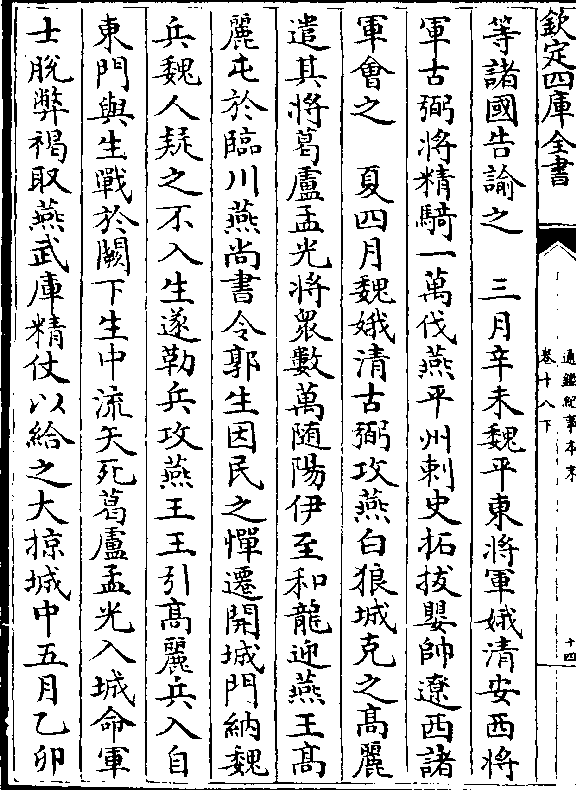 欽定四庫全書
通鑑紀事本末
卷十八下
十四
等諸國告諭之　三月辛未魏平東將軍娥清安西將
軍古弼將精騎一萬伐燕平州刺史拓拔嬰帥遼西諸
軍會之　夏四月魏娥清古弼攻燕白狼城克之髙麗
遣其將葛盧孟光將衆數萬随陽伊至和龍迎燕王髙
麗屯於臨川燕尚書令郭生因民之憚遷開城門納魏
兵魏人疑之不入生遂勒兵攻燕王王引髙麗兵入自
東門與生戰於闕下生中流矢死葛盧孟光入城命軍
士脫弊褐取燕武庫精仗以給之大掠城中五月乙卯